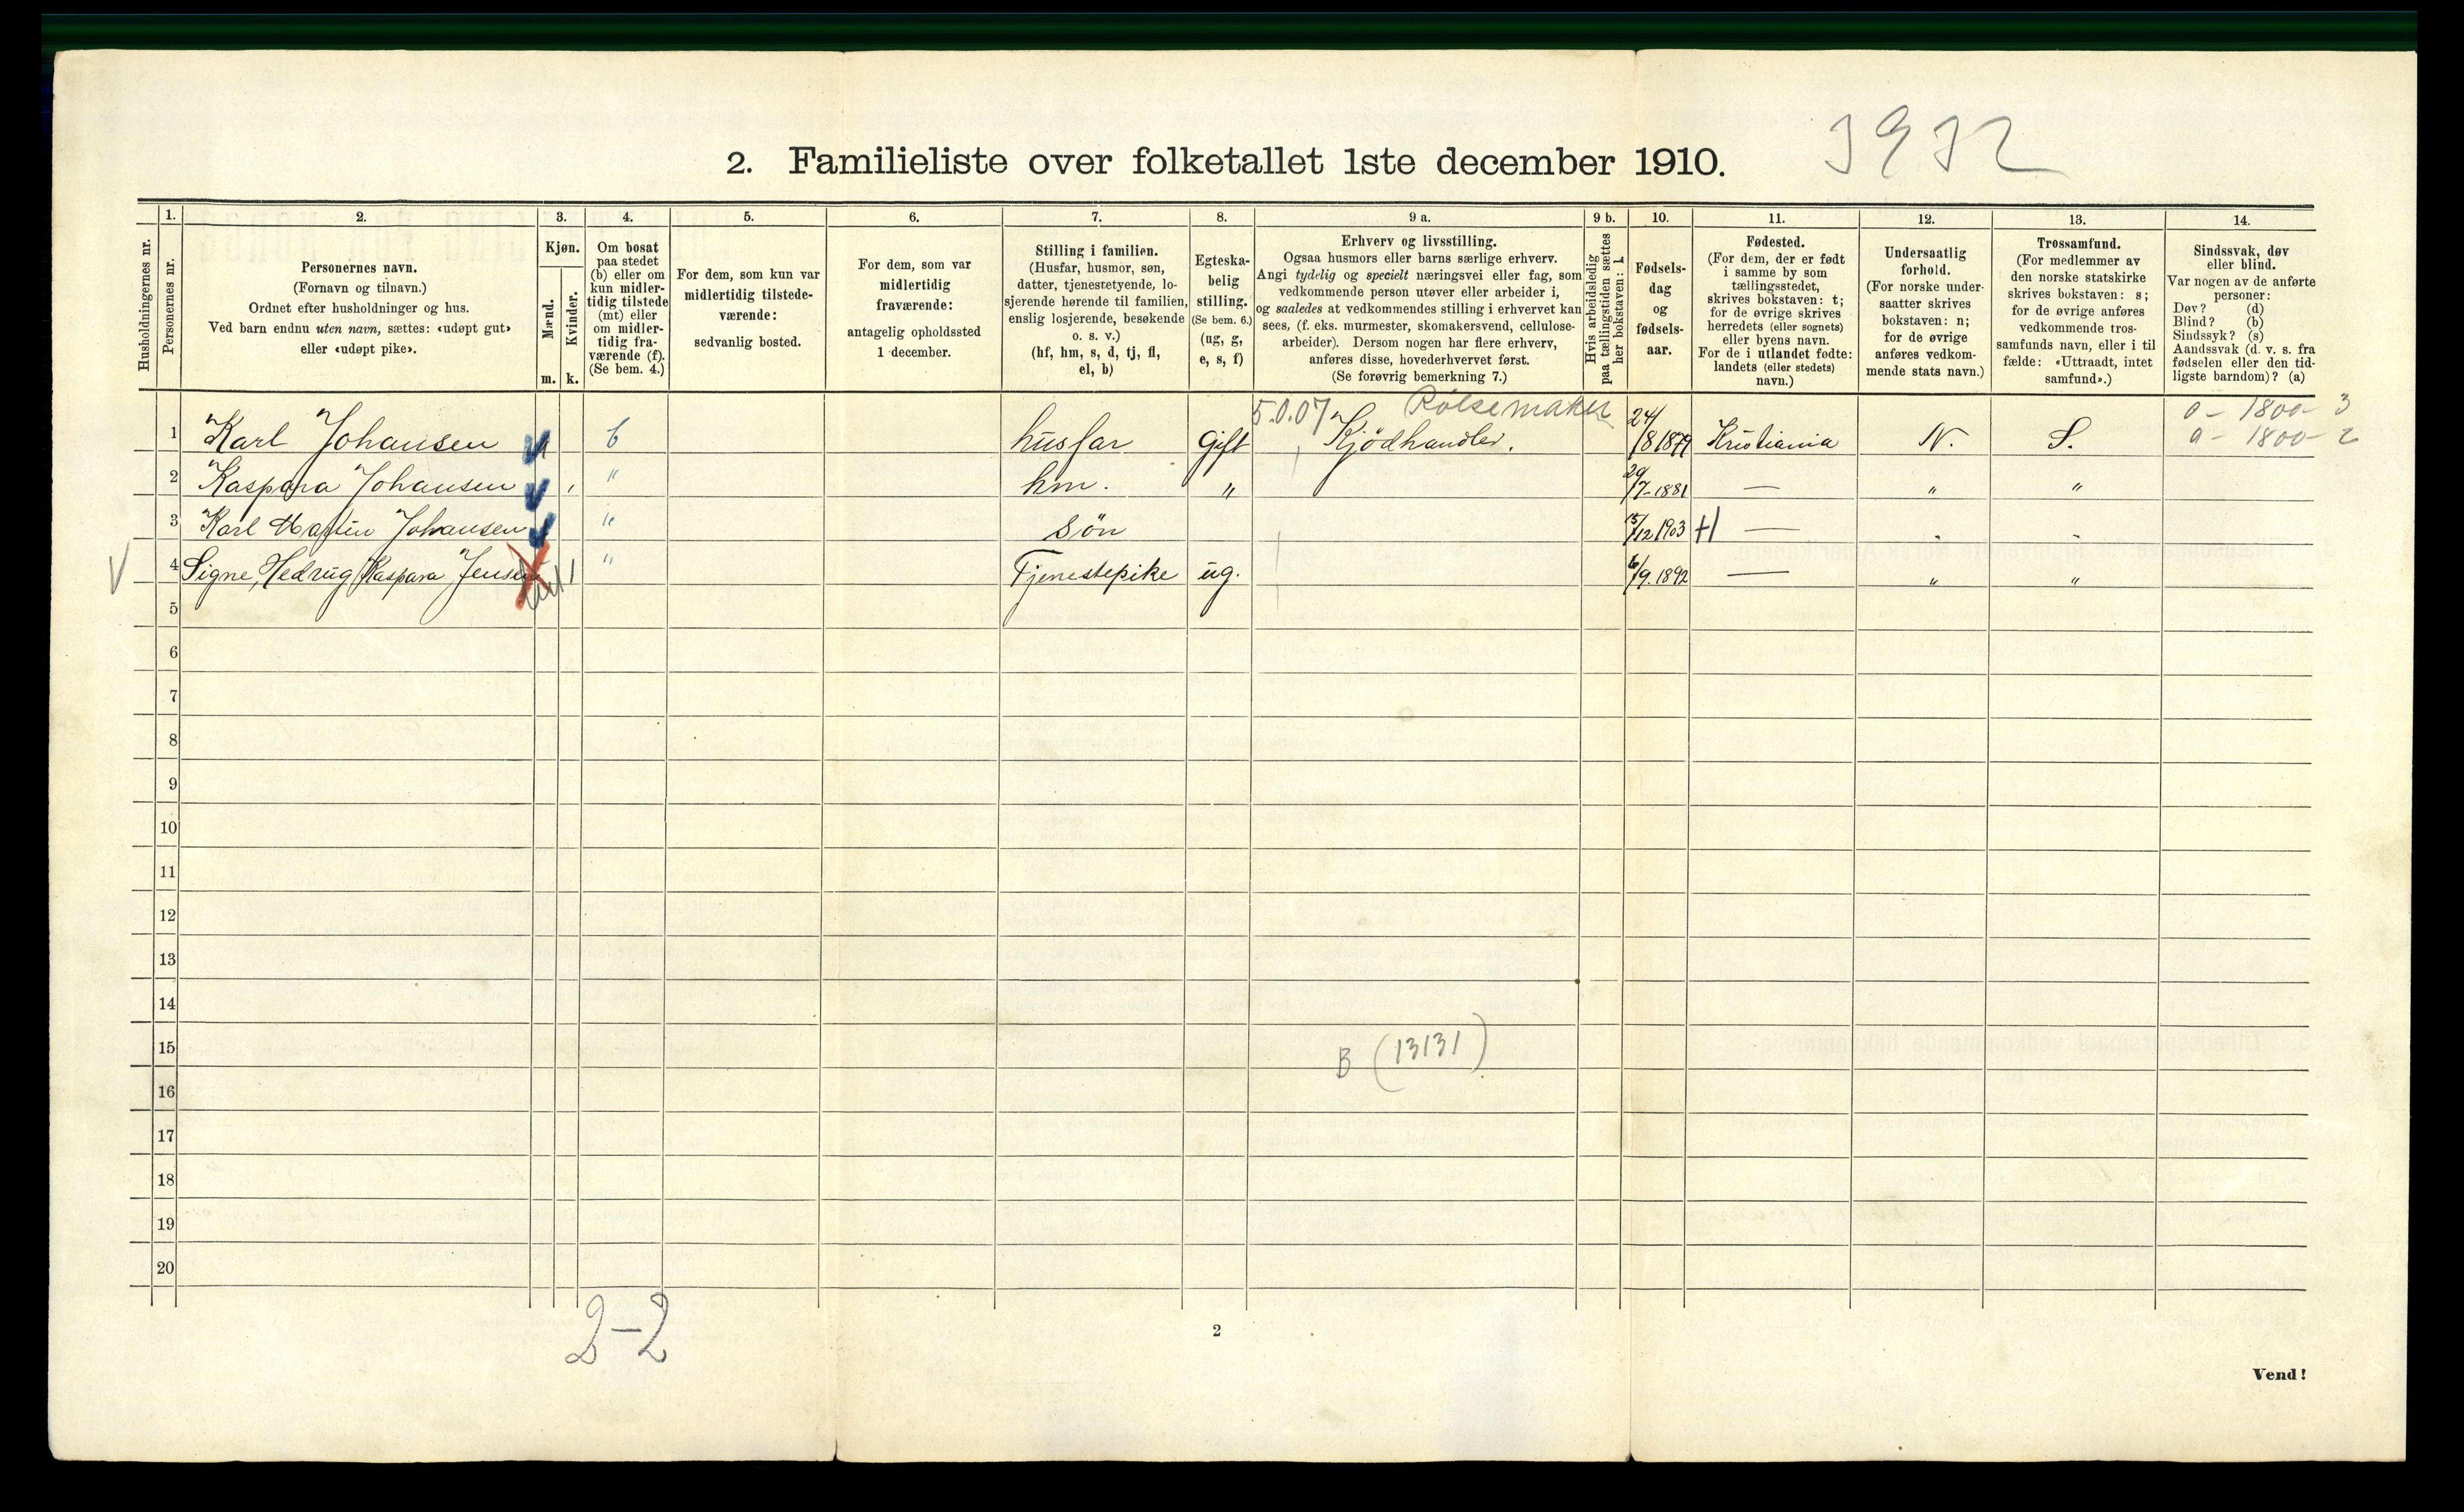 3932
2. Familieliste over folketallet 1ste december 1910.
Husholdningernes nr.
1.
Personernes nr.
2.
Personernes navn.
(Fornavn og tilnavn.)
Ordnet efter husholdninger og hus.
Ved barn endnu uten navn, sættes: «udøpt gut»
eller «udøpt pike».
3.
Kjøn.
Mænd.
Kvinder.
m. k.
4.
Om bosat
paa stedet
(b) eller om
kun midler-
tidig tilstede
(mt) eller
om midler-
tidig fra-
værende (f).
(Se bem. 4.)
5.
For dem, som kun var
midlertidig tilstede-
værende:
sedvanlig bosted.
6.
For dem, som var
midlertidig
fraværende:
antagelig opholdssted
1 december.
7.
Stilling i familien.
(Husfar, husmor, søn,
datter, tjenestetyende, lo-
sjerende hørende til familien,
enslig losjerende, besøkende
o. s. v.)
(hf, hm, s, d, tj, fl,
el, b)
8.
Egteska-
belig
stilling.
(Se bem. 6.)
(ug, g,
e, s, f)
9 a.
Erhverv og livsstilling.
Ogsaa husmors eller barns særlige erhverv.
Angi tydelig og specielt næringsvei eller fag, som
vedkommende person utøver eller arbeider i,
og saaledes at vedkommendes stilling i erhvervet kan
sees, (f. eks. murmester, skomakersvend, cellulose-
arbeider). Dersom nogen har flere erhverv,
anføres disse, hovederhvervet først.
(Se forøvrig bemerkning 7.)
9 b.
Hvis arbeidsledig
paa tællingstiden sættes
her bokstaven: l.
10.
Fødsels-
dag
og
fødsels-
aar.
11.
Fødested.
(For dem, der er født
i samme by som
tællingsstedet,
skrives bokstaven: t;
for de øvrige skrives
herredets (eller sognets)
eller byens navn.
For de i utlandet fødte:
landets (eller stedets)
navn.)
12.
Undersaatlig
forhold.
(For norske under-
saatter skrives
bokstaven: n;
for de øvrige
anføres vedkom-
mende stats navn.)
13.
Trossamfund.
(For medlemmer av
den norske statskirke
skrives bokstaven: s;
for de øvrige anføres
vedkommende tros-
samfunds navn, eller i til
fælde: «Uttraadt, intet
samfund».)
14.
Sindssvak, døv
eller blind.
Var nogen av de anførte
personer:
Døv? (d)
Blind? (b)
Sindssyk? (s)
Aandssvak (d. v. s. fra
fødselen eller den tid-
ligste barndom)? (a)
5.0.07 Pølsemaker o - 1800 - 3
1 Karl Johansen 1 b husfar Gift Kjödhandler. 24/8 1879 Kristiania N. S. a - 1800 - 2
2 Kaspara Johansen 1 " hm. " 29/7-1881 — " "
3 Karl Martin Johansen 1 " Sön 15/12 1903 H — " "
V 4 Signe, Hedvig Kaspara Jensen 1 " Tjenestepike ug. 6/9. 1892 — " "
5
6
7
8
9
10
11
12
13
14
15 B (13131)
16
17
18
19
20
2-2
2
Vend!